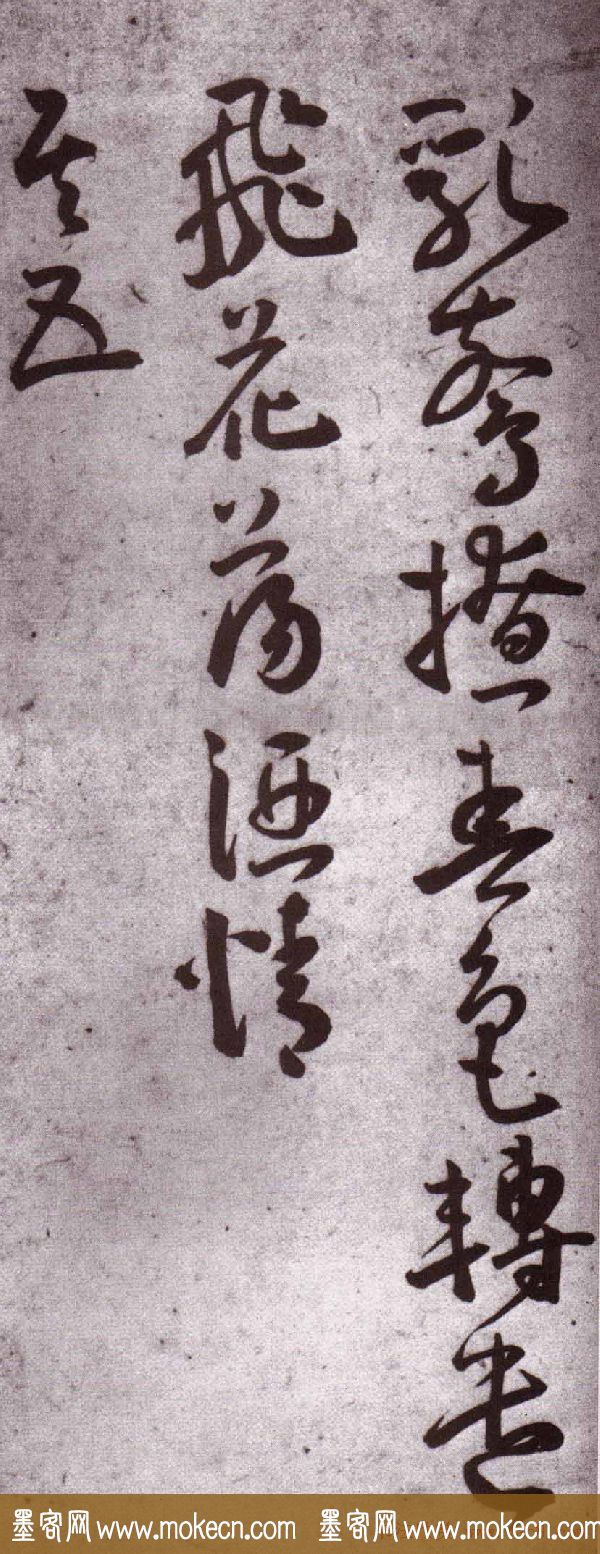 歌鶯撩春色轉遣
飛花蕩酒情
其五
墨客网 www.mokecn.com 墨客网 www.mokecn.com